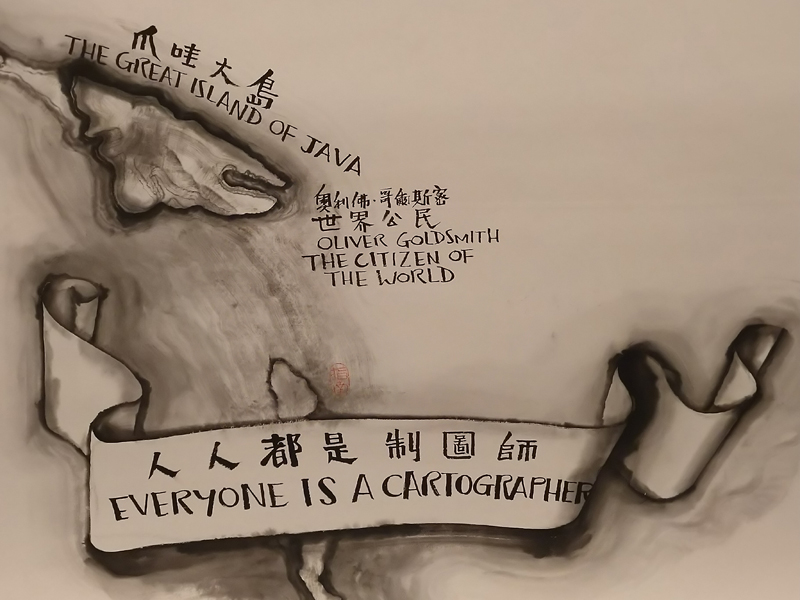 爪哇大島
THE GREAT ISLAND OF JAVA
奧利佛·哥爾斯密
世界公民
OLIVER GOLDSMITH
THE CITIZEN OF
THE WORLD
人人都是制圖師
EVERYONE IS A CARTOGRAPHER